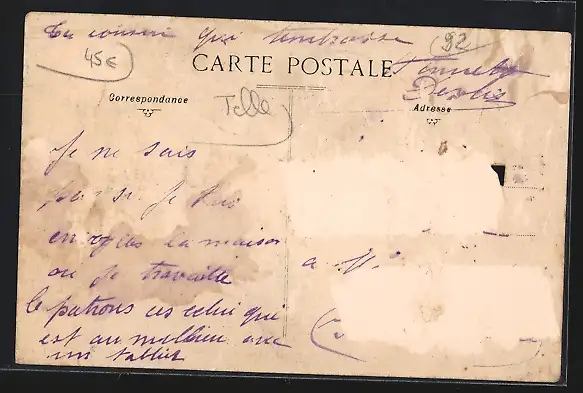 ta cousine qui tembrasse
92
45€
CARTE POSTALE
Correspondance
Adresse
Je ne sais
pas si je tai
envoyes la maison
ou je travaille
le patrons ces celui qui
est au millieu avec
un tablier
a M.